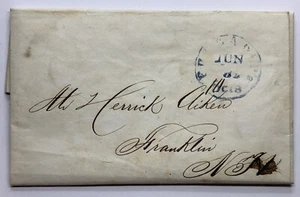 JUN
Mr Herrick Aiken
Franklin
N.H.